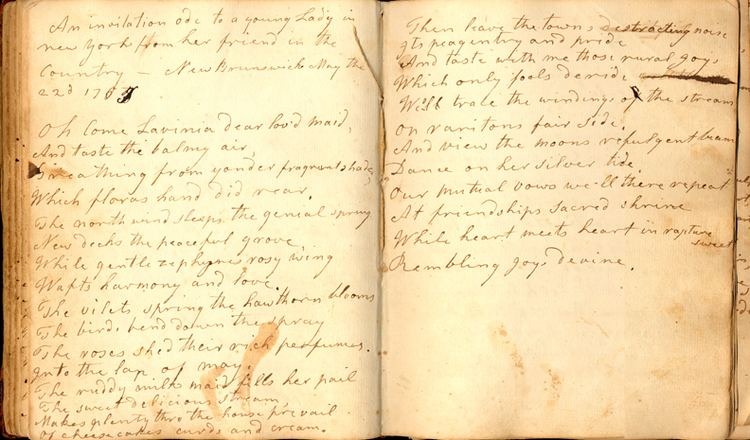 An invitation ode to a young Lady in
new york from her friend in the
Country — New Brunswick May the
22d
Oh Come Lavinia dear lov'd maid,
And taste the balmy air,
Breathing from yonder fragrant shades,
Which floras hand did rear.
The north wind sleeps the genial spring
Now decks the peaceful grove,
While gentle zephyrs rosy wing
Wafts harmony and love.
The vilets spring the hawthorn blooms
The birds bend down the spray
The roses shed their rich perfumes.
Into the lap of may.
The ruddy milk maid fills her pail
The sweet delicious stream,
Makes plenty thro the house prevail
Of cheesecakes curds and cream.
Then leave the towns destracting noise
Its pagentry and pride
And taste with me those rural joys
Which only fools deride
We'll trace the windings of the stream
On raritons fair side.
And view the moons refulgent beam
Dance on her silver tide
Our mutial vows we'll there repeat
At friendships sacred shrine
While heart meets heart in rapture
sweet
Rembling joys devine.